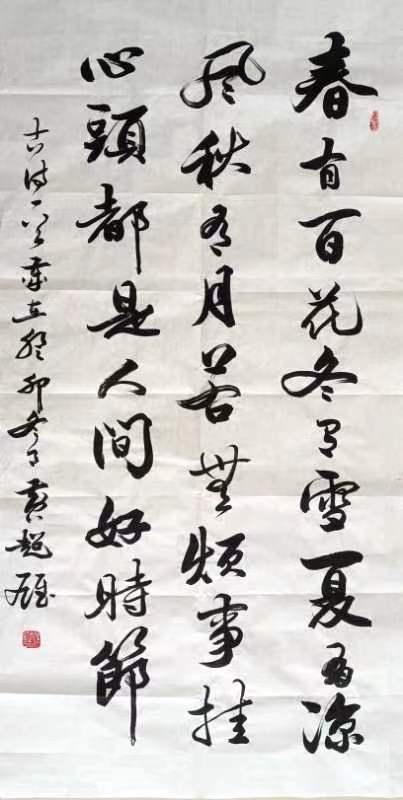 春有百花冬有雪夏有涼
風秋有月若無煩事挂
心頭都是人間好時節
古詩一首歲在癸卯冬月黃超雄